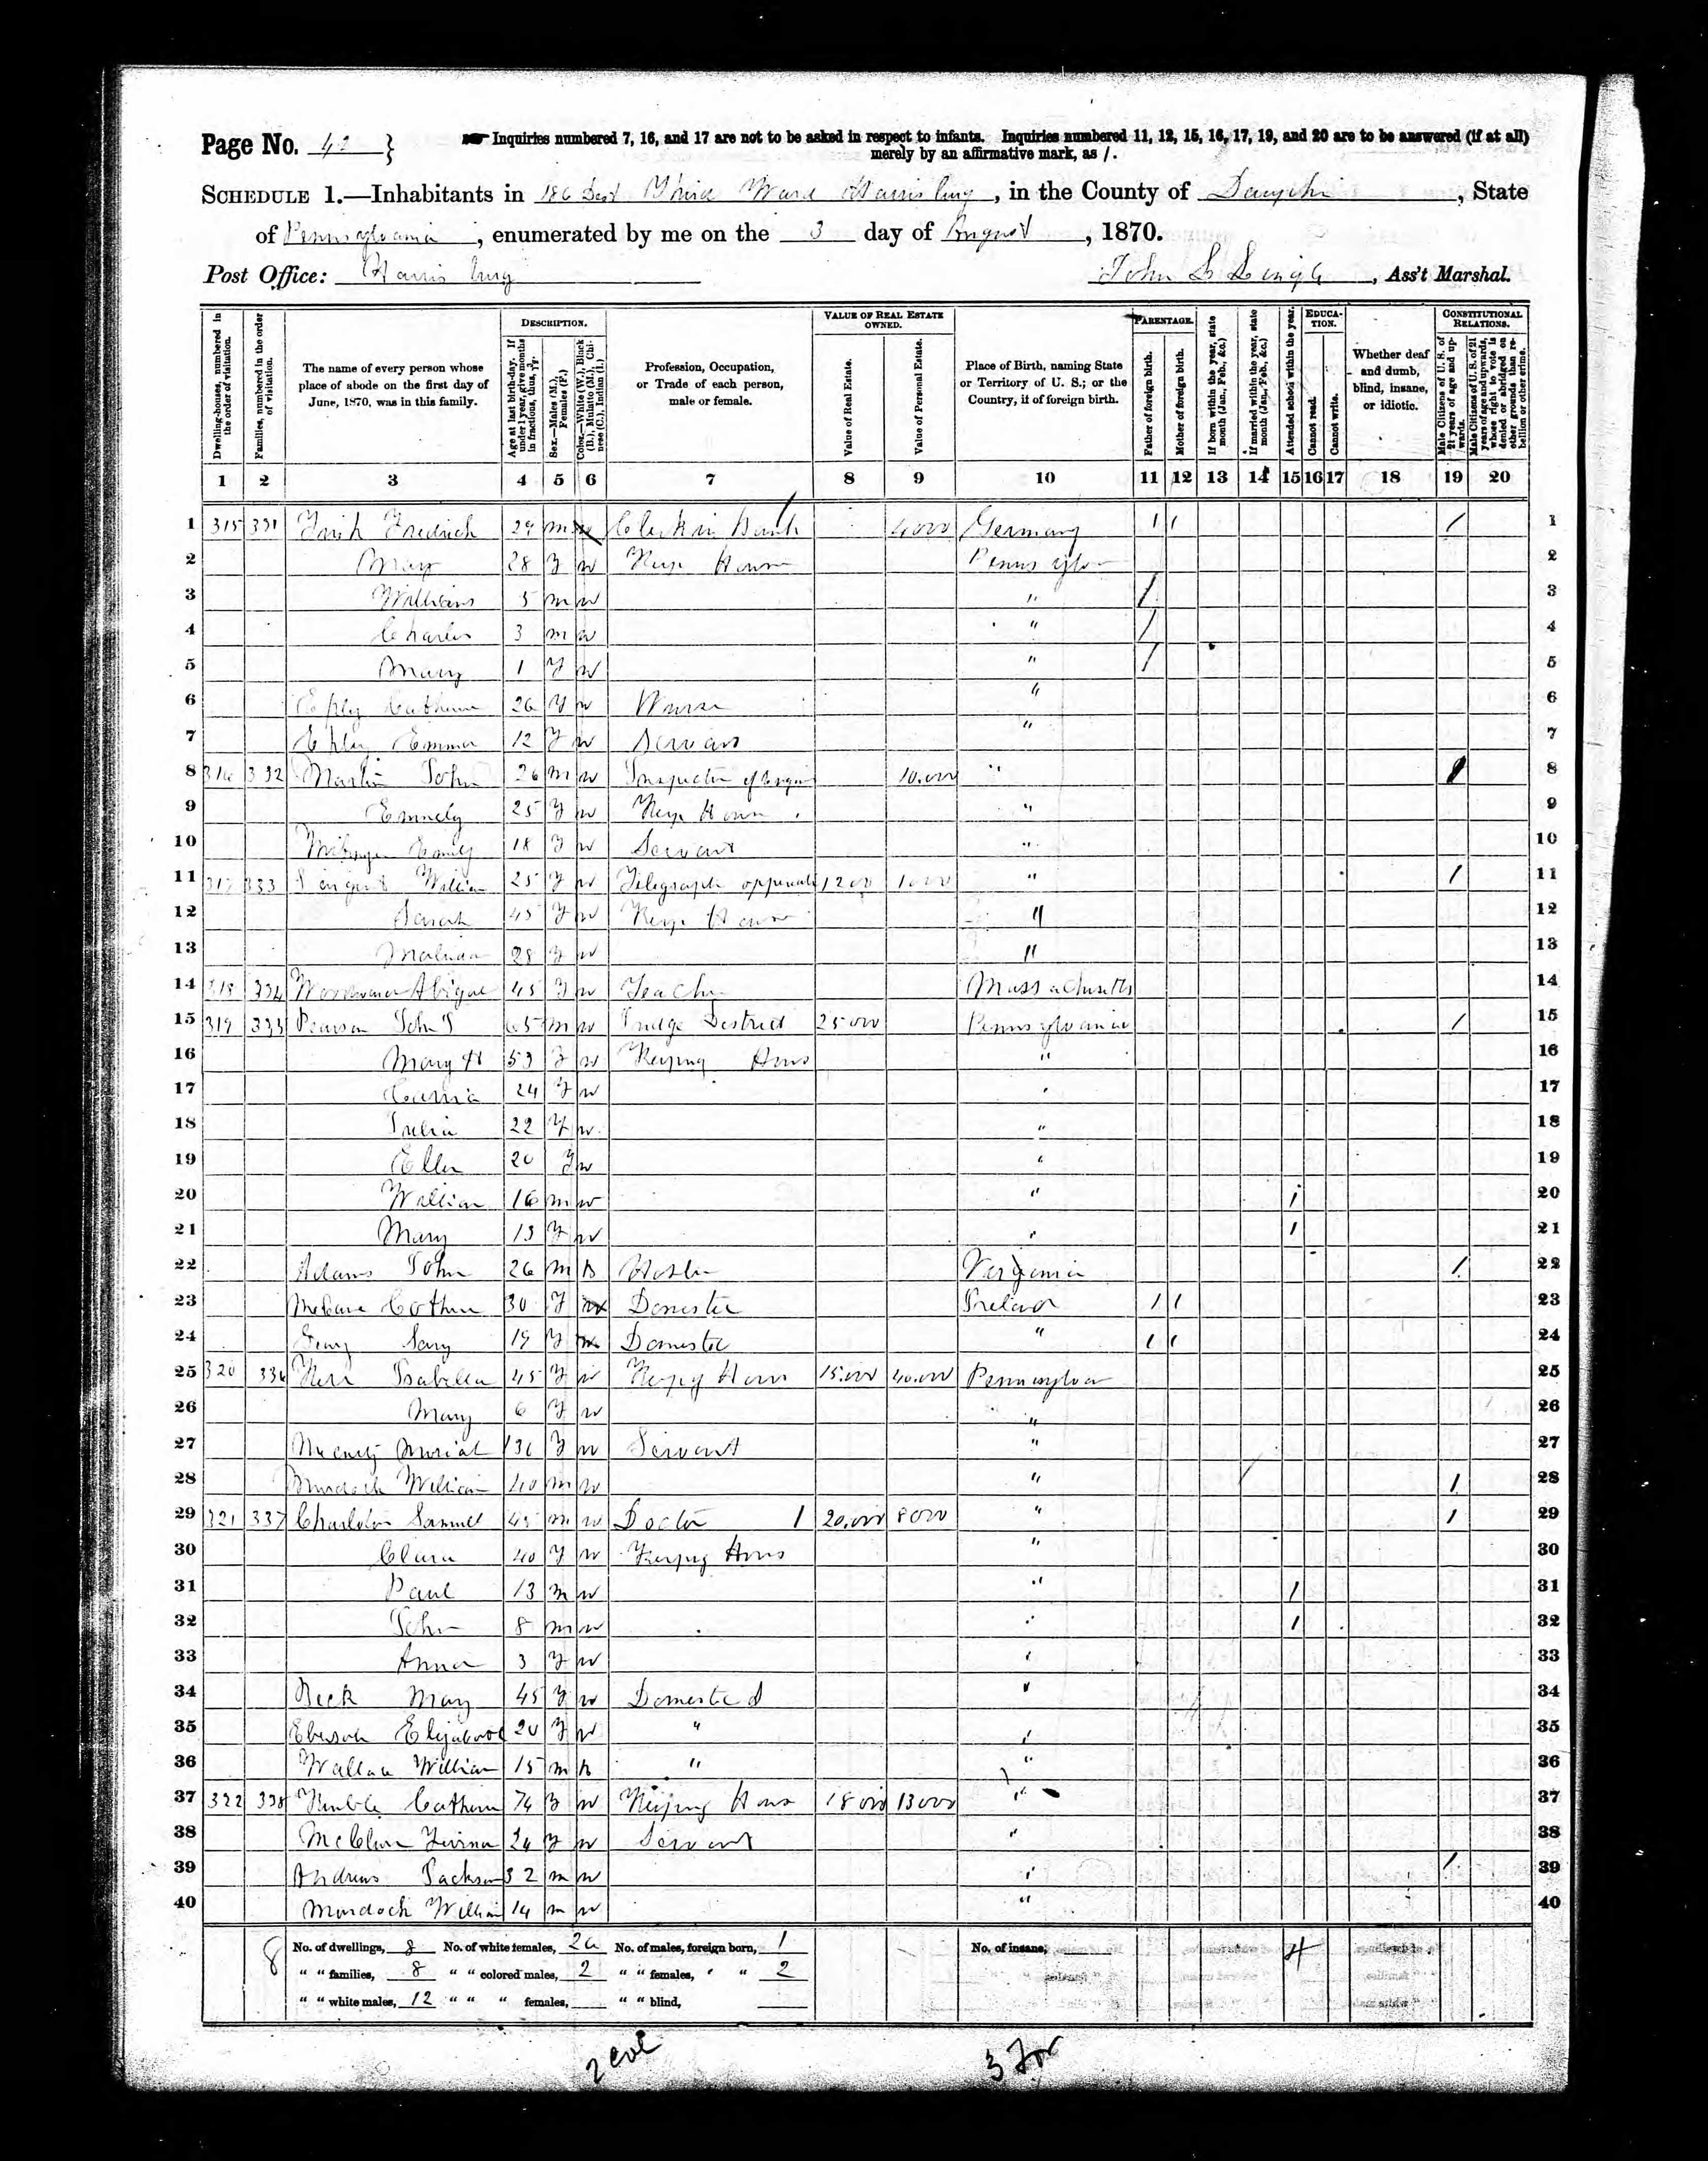 Page No. 42 }
Inquiries numbered 7, 16, and 17 are not to be asked in respect to infants. Inquiries numbered 11, 12, 15, 16, 17, 19, and 20 are to be answered (if at all)
merely by an affirmative mark, as /.
SCHEDULE 1.—Inhabitants in Third Ward Harrisburg, in the County of Dauphin, State
of Pennsylvania, enumerated by me on the 3 day of August, 1870.
Post Office: Harrisburg John Ass't Marshal.
Dwelling-houses, numbered in the order of visitation.
Families, numbered in the order of visitation.
The name of every person whose place of abode on the first day of June, 1870, was in this family.
DESCRIPTION.
Age at last birth-day. If under 1 year, give months in fractions, thus, 3/12.
Sex.—Males (M.), Females (F.)
Color.—White (W.), Black (B.), Mulatto (M.), Chinese (C.), Indian (I.)
Profession, Occupation, or Trade of each person, male or female.
VALUE OF REAL ESTATE OWNED.
Value of Real Estate.
Value of Personal Estate.
Place of Birth, naming State or Territory of U. S.; or the Country, if of foreign birth.
PARENTAGE.
Father of foreign birth.
Mother of foreign birth.
If born within the year, state month (Jan., Feb., &c.)
If married within the year, state month (Jan., Feb., &c.)
Attended school within the year.
EDUCATION.
Cannot read.
Cannot write.
Whether deaf and dumb, blind, insane, or idiotic.
CONSTITUTIONAL RELATIONS.
Male Citizens of U. S. of 21 years of age and upwards.
Male Citizens of U. S. of 21 years of age and upwards, whose right to vote is denied or abridged on other grounds than rebellion or other crime.
1 2 3 4 5 6 7 8 9 10 11 12 13 14 15 16 17 18 19 20
1 315 331 Fredrich 29 m w Clerk in Bank 4000 Germany / / / 1
2 Mary 28 F w Keep House Pennsylva 2
3 William 5 m w " / 3
4 Charles 3 m w " / 4
5 Mary 1 F w " / 5
6 Eply Catherine 26 F w Nurse " 6
7 Eply Emma 12 F w Servant " 7
8 316 332 Martin John 26 m w Inspector of 10.000 " / 8
9 Emmely 25 F w Keep House " 9
10 Emily 18 F w Servant " 10
11 317 333 William 25 F w Telegraph opperator 1200 1000 " / 11
12 Sarah 45 F w Keep House " 12
13 28 F w " 13
14 318 334 Abigal 45 F w Teacher Massachusetts 14
15 319 335 Pearson John J 65 m w Judge District 25000 Pennsylvania / 15
16 Mary H 53 F w Keeping Hous " 16
17 Carria 24 F w " 17
18 Julia 22 F w " 18
19 Ellen 20 F w " 19
20 William 16 m w " / 20
21 Mary 13 F w " / 21
22 Adams John 26 m B Hostler Virginia / 22
23 McCane Cathrine 30 F w Domestic Ireland / / 23
24 19 F w Domestic " / / 24
25 320 336 Kerr Isabella 45 F w Keepig Hous 15.000 40.000 Pennsylva 25
26 Mary 6 F w " 26
27 36 F w Servant " 27
28 Murdock William 40 m w " / 28
29 321 337 Charlston Samuel 45 m w Doctor / 20.000 8000 " / 29
30 Clara 40 F w Keepig Hous " 30
31 Paul 13 m w " / 31
32 John 8 m w " / 32
33 Anna 3 F w " 33
34 Beck Mary 45 F w Domestic " 34
35 Ebersole 20 F w " " 35
36 Wallace William 15 m B " " 36
37 322 338 Kunkle Catherin 74 F w Keeping Hous 18000 13000 " 37
38 McClure 24 F w Servant " 38
39 Andrews Jackson 32 m w " / 39
40 Murdock William 14 m w " 40
8 No. of dwellings, 8 No. of white females, 26 No. of males, foreign born, 1 No. of insane, 4
" " families, 8 " " colored males, 2 " " females, " " 2
" " white males, 12 " " " females, " " blind,
2 col 3 For